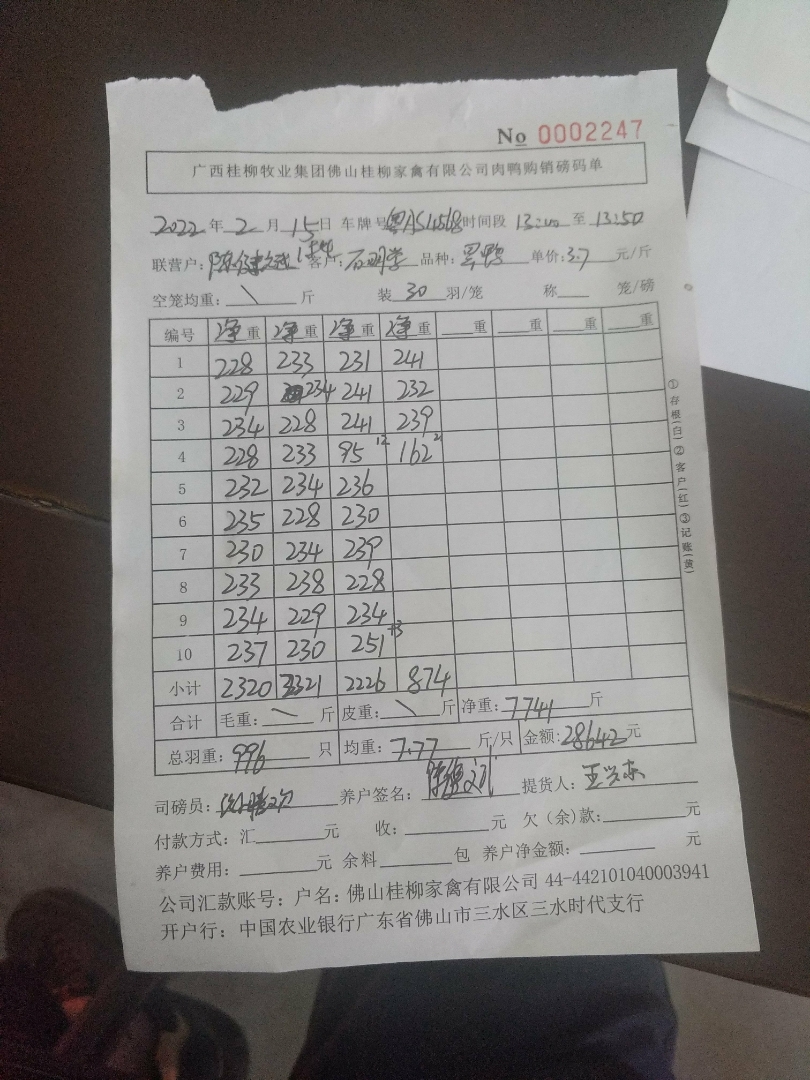 No 0002247
广西桂柳牧业集团佛山桂柳家禽有限公司肉鸭购销磅码单
2022 年 2 月 15 日 车牌号 粤 时间段 13:00 至 13:50
联营户: 陈 客户: 石明学 品种: 鸭 单价: 3.7 元/斤
空笼均重: \ 斤 装 30 羽/笼 称 笼/磅
编号 净重 净重 净重 净重 重 重 重 重
1 228 233 231 241
2 229 234 241 232
3 234 228 241 239
4 228 233 95 12 162 2
5 232 234 236
6 235 228 230
7 230 234 239
8 233 238 228
9 234 229 234
10 237 230 251 +3
小计 2320 2321 2226 874
合计 毛重: \ 斤 皮重: \ 斤 净重: 7741 斤
总羽重: 996 只 均重: 7.77 斤/只 金额: 28642 元
司磅员: 养户签名: 陈 提货人: 王兴
付款方式: 汇 元 收: 元 欠(余)款: 元
养户费用: 元 余料 包 养户净金额: 元
公司汇款账号: 户名: 佛山桂柳家禽有限公司 44-442101040003941
开户行: 中国农业银行广东省佛山市三水区三水时代支行
①存根(白)②客户(红)③记账(黄)